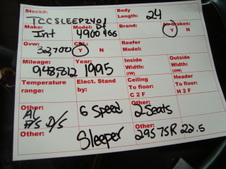 Stock#: Body Length: 24
TCCSLEEPZV01
Make: Model: Brakes:
Int 4900 466 Y N
Gvw: CDL: Reefer Model:
32700 Y N
Mileage: Year: Inside Width: Outside Width:
948,812 1995 (W) (W)
Temperature range: Elect. Stand by: Ceiling To floor: Header To Floor:
C 2 F H 2 F
Other: 6 Speed Other: 2 Seats
AC P/S
Other: Sleeper Other: 295 75R 22.5